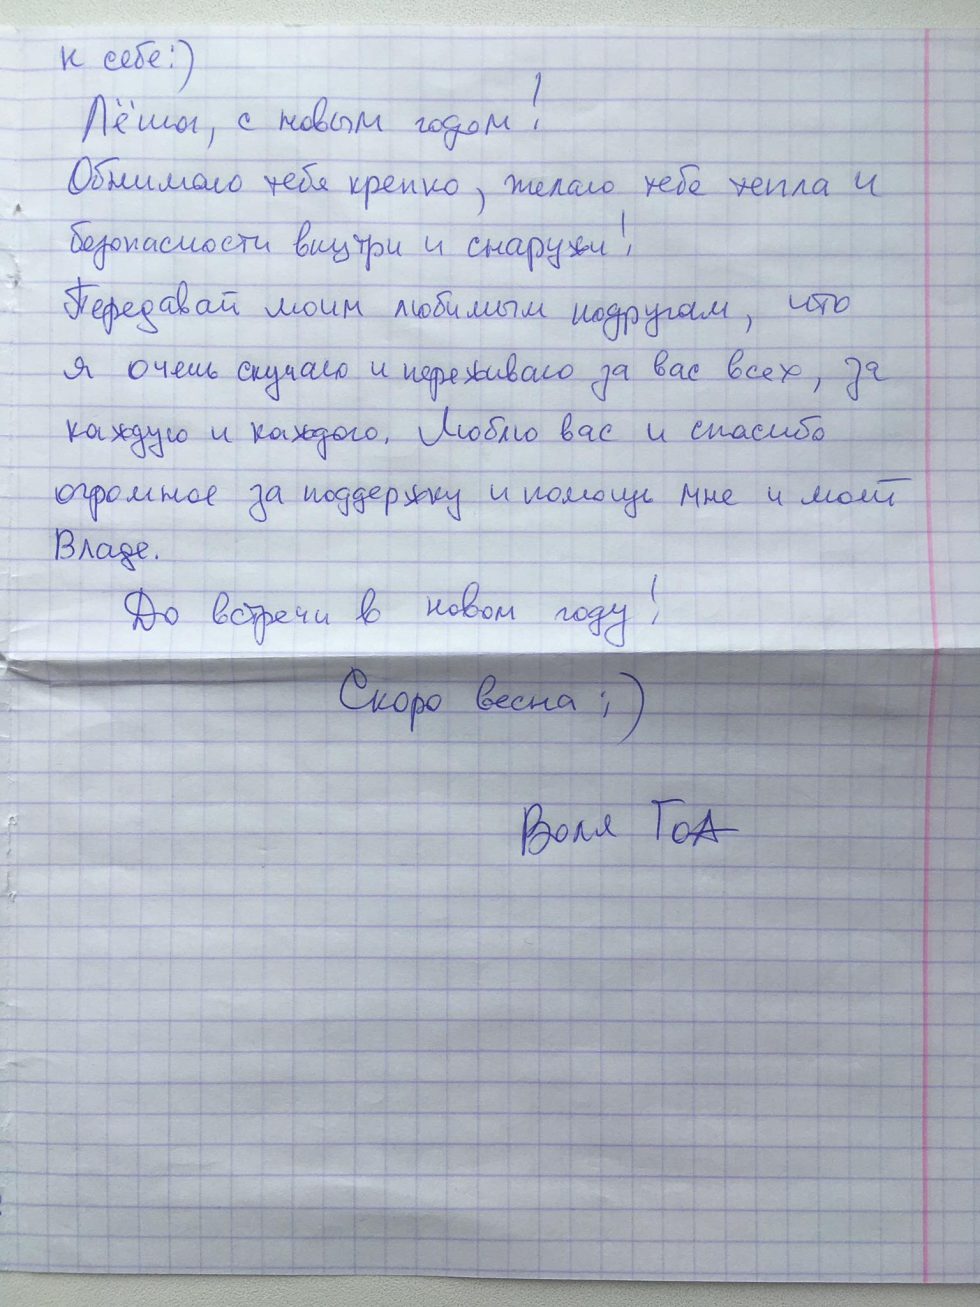 к себе:)
Лёша, с новым годом!
Обнимаю тебя крепко, желаю тебе тепла и
безопасности внутри и снаружи!
Передавай моим любимым подругам, что
я очень скучаю и переживаю за вас всех, за
каждую и каждого. Люблю вас и спасибо
огромное за поддержку и помощь мне и моей
Владе.
До встречи в новом году!
Скоро весна ;)
Воля